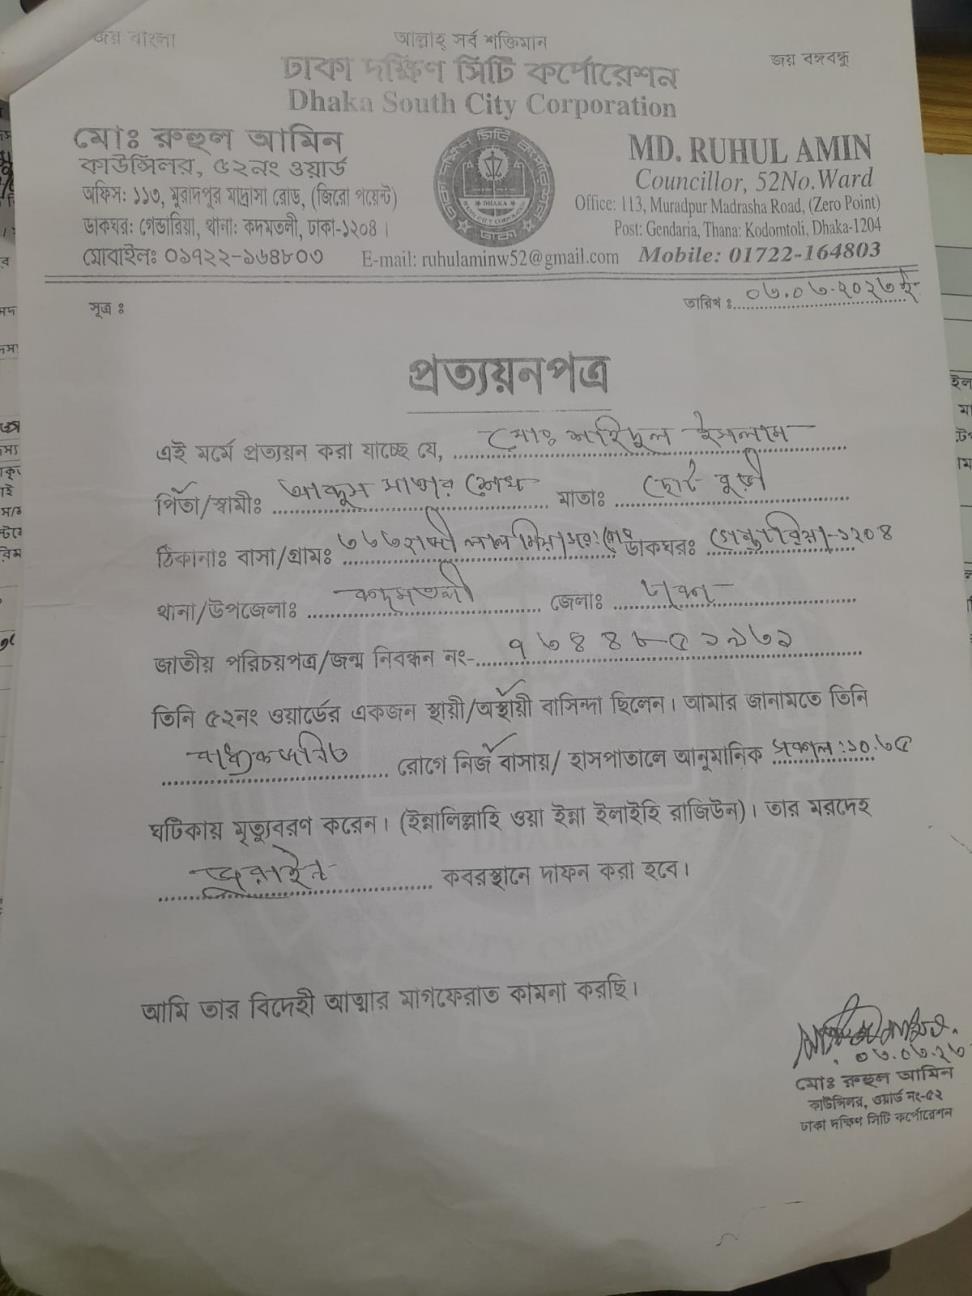 জয় বাংলা
আল্লাহ্ সর্ব শক্তিমান
জয় বঙ্গবন্ধু
ঢাকা দক্ষিণ সিটি কর্পোরেশন
Dhaka South City Corporation
মোঃ রুহুল আমিন
কাউন্সিলর, ৫২নং ওয়ার্ড
অফিস: ১১৩, মুরাদপুর মাদ্রাসা রোড, (জিরো পয়েন্ট)
ডাকঘর: গেন্ডারিয়া, থানা: কদমতলী, ঢাকা-১২০৪।
মোবাইলঃ ০১৭২২-১৬৪৮০৩
DHAKA
MD. RUHUL AMIN
Councillor, 52No.Ward
Office: 113, Muradpur Madrasha Road, (Zero Point)
Post: Gendaria, Thana: Kodomtoli, Dhaka-1204
E-mail: ruhulaminw52@gmail.com Mobile: 01722-164803
সূত্র ঃ
তারিখ ঃ
প্রত্যয়নপত্র
এই মর্মে প্রত্যয়ন করা যাচ্ছে যে, মোঃ শহিদুল ইসলাম
পিতা/স্বামীঃ মাতাঃ
ঠিকানাঃ বাসা/গ্রামঃ ডাকঘরঃ
থানা/উপজেলাঃ কদমতলী জেলাঃ ঢাকা
জাতীয় পরিচয়পত্র/জন্ম নিবন্ধন নং-
তিনি ৫২নং ওয়ার্ডের একজন স্থায়ী/অস্থায়ী বাসিন্দা ছিলেন। আমার জানামতে তিনি
বার্ধক্যজনিত রোগে নিজ বাসায়/ হাসপাতালে আনুমানিক সকাল: ১০.৩৫
ঘটিকায় মৃত্যুবরণ করেন। (ইন্নালিল্লাহি ওয়া ইন্না ইলাইহি রাজিউন)। তার মরদেহ
জুরাইন কবরস্থানে দাফন করা হবে।
আমি তার বিদেহী আত্মার মাগফেরাত কামনা করছি।
মোঃ রুহুল আমিন
কাউন্সিলর, ওয়ার্ড নং-৫২
ঢাকা দক্ষিণ সিটি কর্পোরেশন